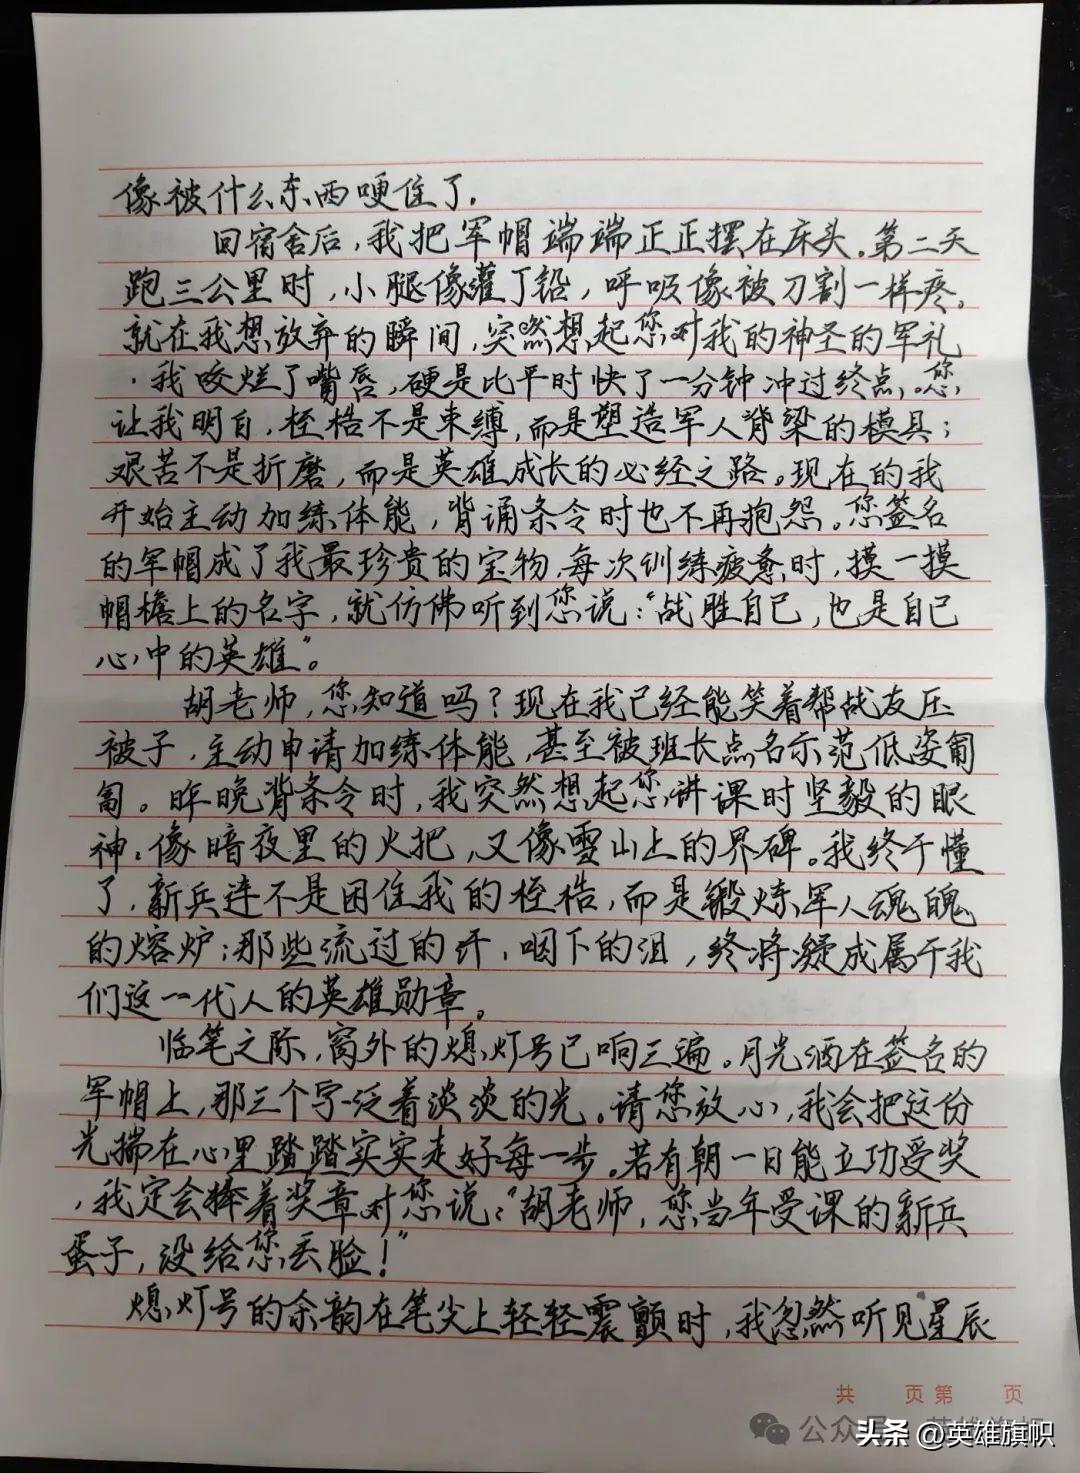 像被什么东西哽住了.
回宿舍后,我把军帽端端正正摆在床头.第二天
跑三公里时,小腿像灌了铅,呼吸像被刀割一样疼.
就在我想放弃的瞬间,突然想起您对我的神圣的军礼
,我咬烂了嘴唇,硬是比平时快了一分钟冲过终点.您
让我明白,桎梏不是束缚,而是塑造军人脊梁的模具;
艰苦不是折磨,而是英雄成长的必经之路。现在的我
开始主动加练体能,背诵条令时也不再抱怨。您签名
的军帽成了我最珍贵的宝物,每次训练疲惫时,摸一摸
帽檐上的名字,就仿佛听到您说:“战胜自己,也是自己
心中的英雄”。
胡老师,您知道吗?现在我已经能笑着帮战友压
被子,主动申请加练体能,甚至被班长点名示范低姿匍
匐。昨晚背条令时,我突然想起您讲课时坚毅的眼
神.像暗夜里的火把,又像雪山上的界碑。我终于懂
了,新兵连不是困住我的桎梏,而是锻炼军人魂魄
的熔炉;那些流过的汗,咽下的泪,终将凝成属于我
们这一代人的英雄勋章。
临笔之际,窗外的熄灯号已响三遍。月光洒在签名的
军帽上,那三个字泛着淡淡的光。请您放心,我会把这份
光揣在心里踏踏实实走好每一步。若有朝一日能立功受奖
,我定会捧着奖章对您说:“胡老师,您当年受课的新兵
蛋子,没给您丢脸!”
熄灯号的余韵在笔尖上轻轻震颤时,我忽然听见星辰
共 页 第 页
公众号
头条 @英雄旗帜